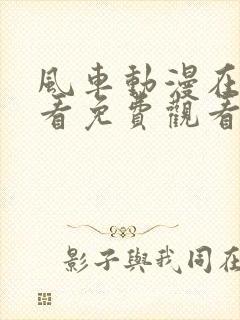 風車動漫在
看免費觀看
影子與我同在